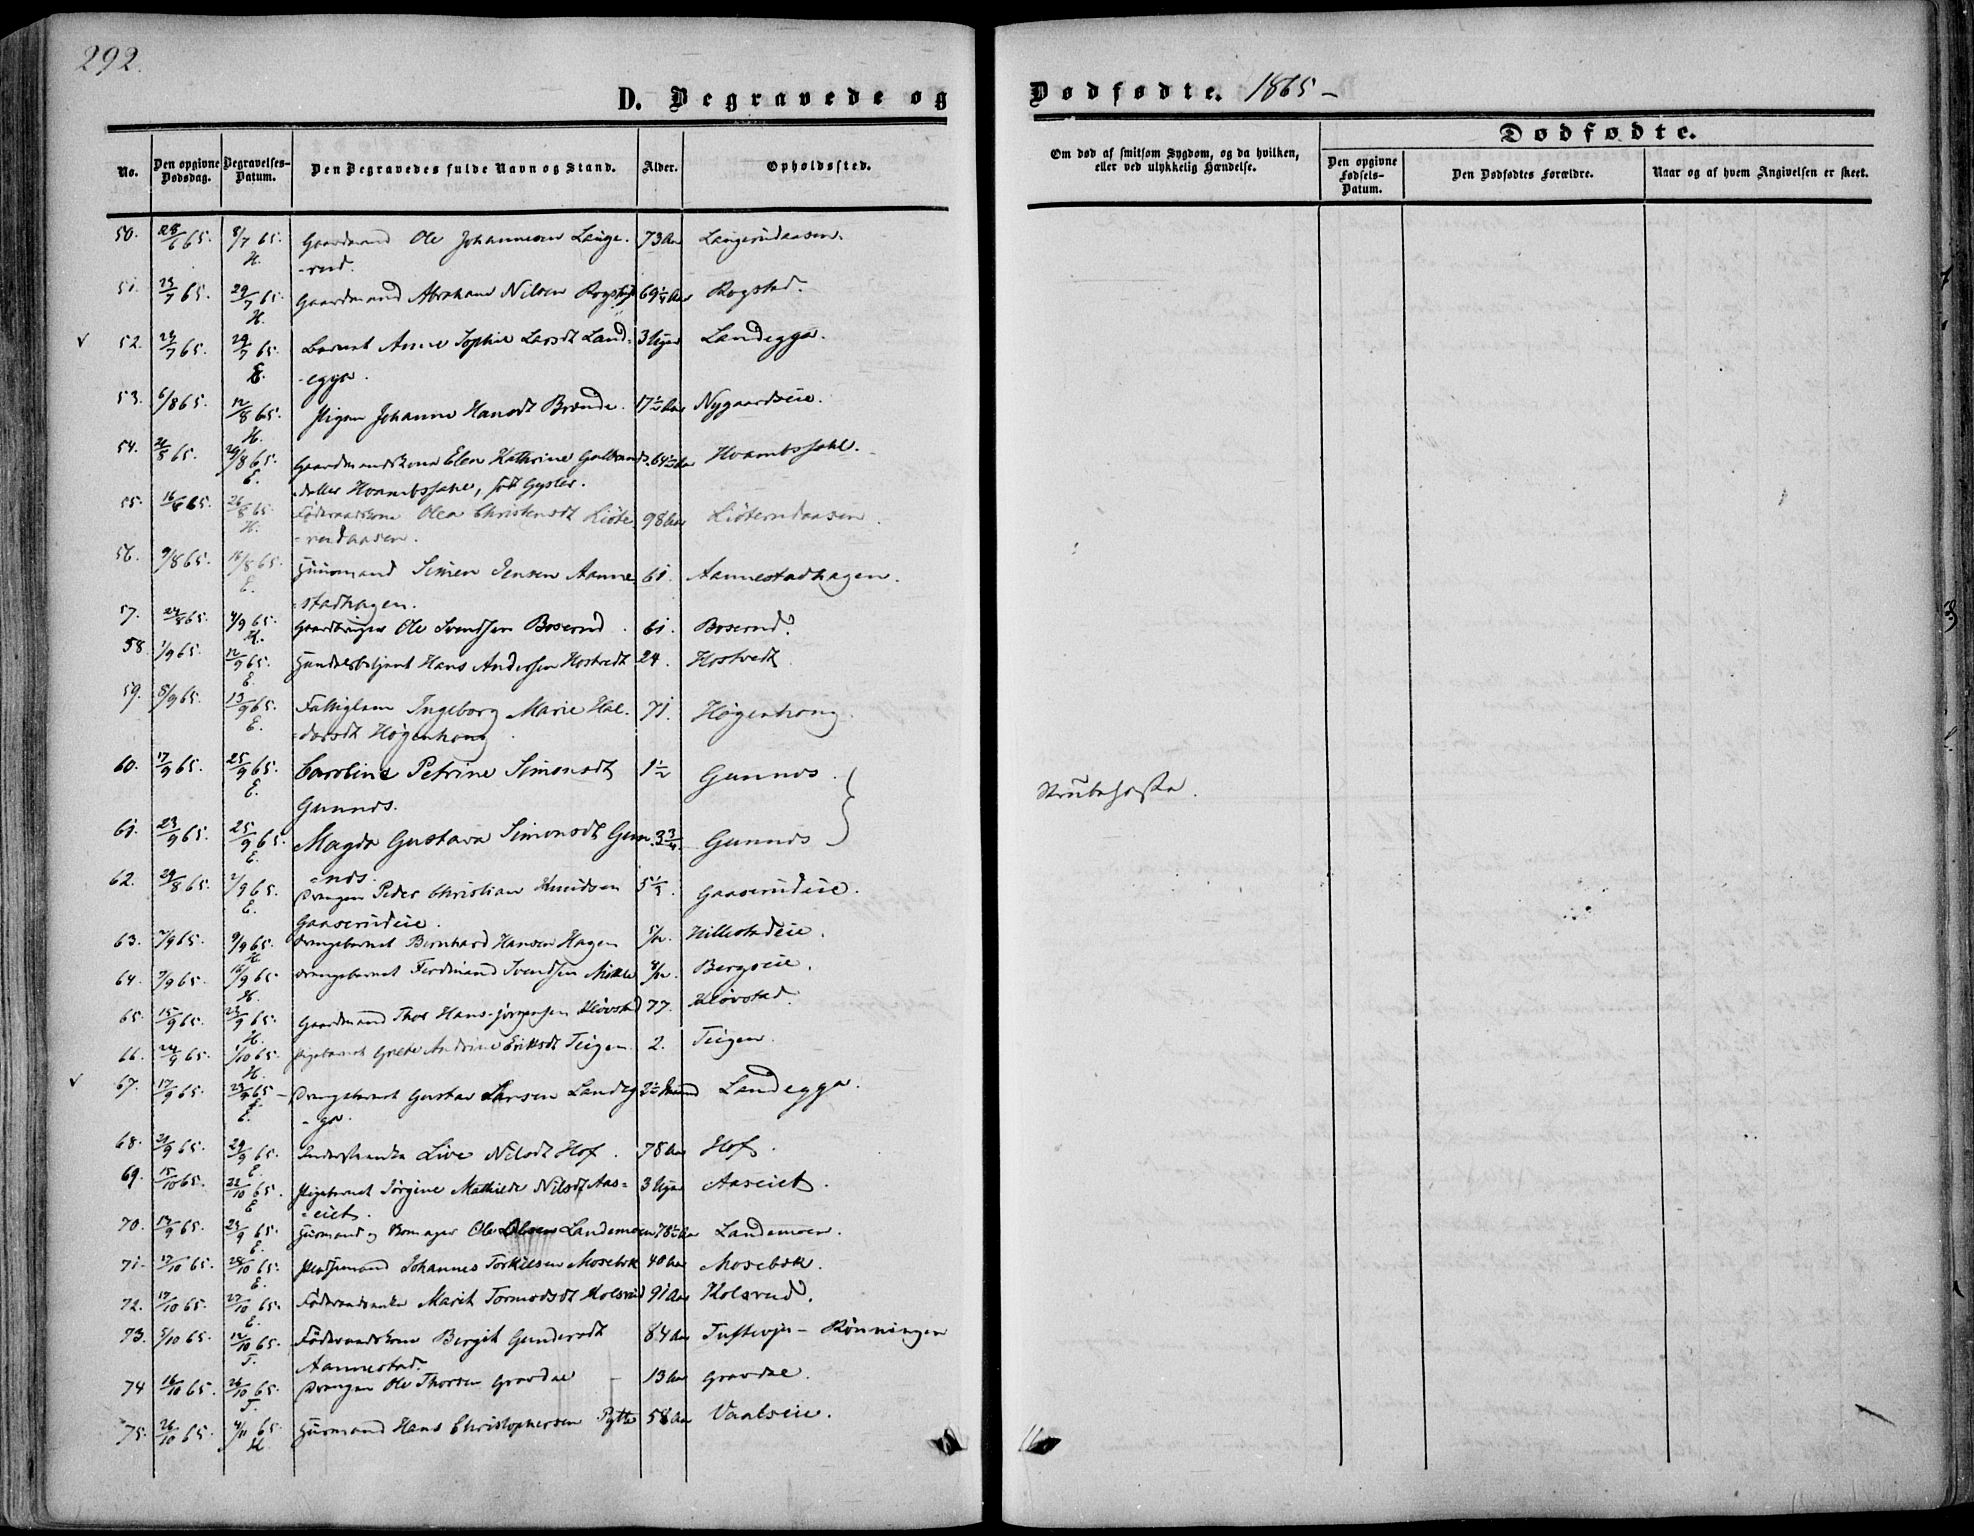 292.
D. Begravede og
Dødfødte. 1865 –
No.
Den opgivne Dødsdag.
Begravelses-Datum.
Den Begravedes fulde Navn og Stand.
Alder.
Opholdssted.
Om død af smitsom Sygdom, og da hvilken, eller ved ulykkelig Hændelse.
Dødfødte.
Den opgivne Fødsels-Datum.
Den Dødfødtes Forældre.
Naar og af hvem Angivelsen er skeet.
50. 28/6 65. 8/7 65. H. Gaardmand Ole Johannesen Lange- 73 Aar Langerudaasen.
-rud.
51. 23/7 65. 29/7 65. H. Gaardmand Abraham Nilsen 69¼ Aar Rogstad.
52. /7 65. 29/7 65. E. Barnet Anne Sophie Larsdt Land- 3 Uger Landegga.
-egga.
53. 6/8 65. 12/8 65. H. Pigen Johanne Hansdt Brænde. 17½ Aar Nygaardseie.
54. /8 65. 29/8 65. E. Gaardmandskone Elen Kathrine Gulbrands. Hvambssahl.
datter Hvambssahl, født Gysler.
55. 16/ 65. 26/8 65. H. Føderaadskone Olea Christensdt Liøte- 98 Aar Liøterudaasen.
-rudaasen.
56. 9/8 65. 16/8 65. E. Huusmand Simen Jensen Aanne- 61. Aannestadhagen.
-stadhagen.
57. /8 65. 4/9 65. H. Gaardbruger Ole Svendsen Boserud. 61. Boserud.
58. 1/9 65. 12/9 65. E. Handelsbetjent Hans Andersen Hostvedt 24. Hostvedt
59. 5/9 65. 13/9 65. E. Fattiglem Ingeborg Marie Hal- 71. Høgenhoug.
-dorsdt Høgenhoug.
60. 17/9 65. 25/9 65. E. Caroline Petrine Simonsdt 1½ Gunnøs. Strubehoste.
Gunnøs.
61. 23/9 65. 25/9 65. E. Magda Gustava Simonsdt Gun- 3¾. Gunnøs
-nøs.
62. 29/8 65. /9 65. E. Drengen Peder Christian Knudsen 5 Gaaserudeie.
Gaaserudeie.
63. /9 65. 9/9 65. H. Drengebarnet Bernhard Hansen Hagen 5/12. Hillestadeie.
64. 7/9 65. 16/9 65. H. Drengebarnet Ferdinand Svendsen /12. Bergseie.
65. 15/9 65. 23/9 65. H. Gaardmand Thor Hans-Jørgensen Kløvstad 77. Kløvstad.
66. /9 65. /10 65. H. Pigebarnet Grete Andrine Eriksdt Teigen. 2. Teigen.
67. 17/9 65. 23/9 65 – E. Drengebarnet Gustav Larsen Landeg 2½ Maaned Landegga.
-ga.
68. 21/9 65. 29/9 65. E. Live Nilsdt Hof. 78 Aar Hof.
69. 15/10 65. 22/10 65. E. Pigebarnet Jørgine Mathilde Nilsdt Aas- 3 Uger Aaseiet.
-eiet.
70. 17/9 65. 23/9 65. E. Huusmand og Ole Olsen Landemoen 78½ Aar Landemoen.
71. 17/10 65. /10 65. E. Pladsemand Johannes Torkilsen Mosebøk 40 Aar Mosebøk.
72. 17/10 65. 27/10 65. E. Føderaadsenke Marit Tormodsdt Kolsrud 91 Aar Kolsrud.
73. 5/10 65. 12/10 65. T. Føderaadskone Birgit Gundersdt 84 Aar Rønningen
Aannestad.
74 16/10 65. /10 65. T. Drengen Ole Thorsen Gravdal – 13 Aar Gravdal.
75. 26/10 65. 4/11 65. H Huusmand Hans Christophersen Pytte 58 Aar Vaalseie.